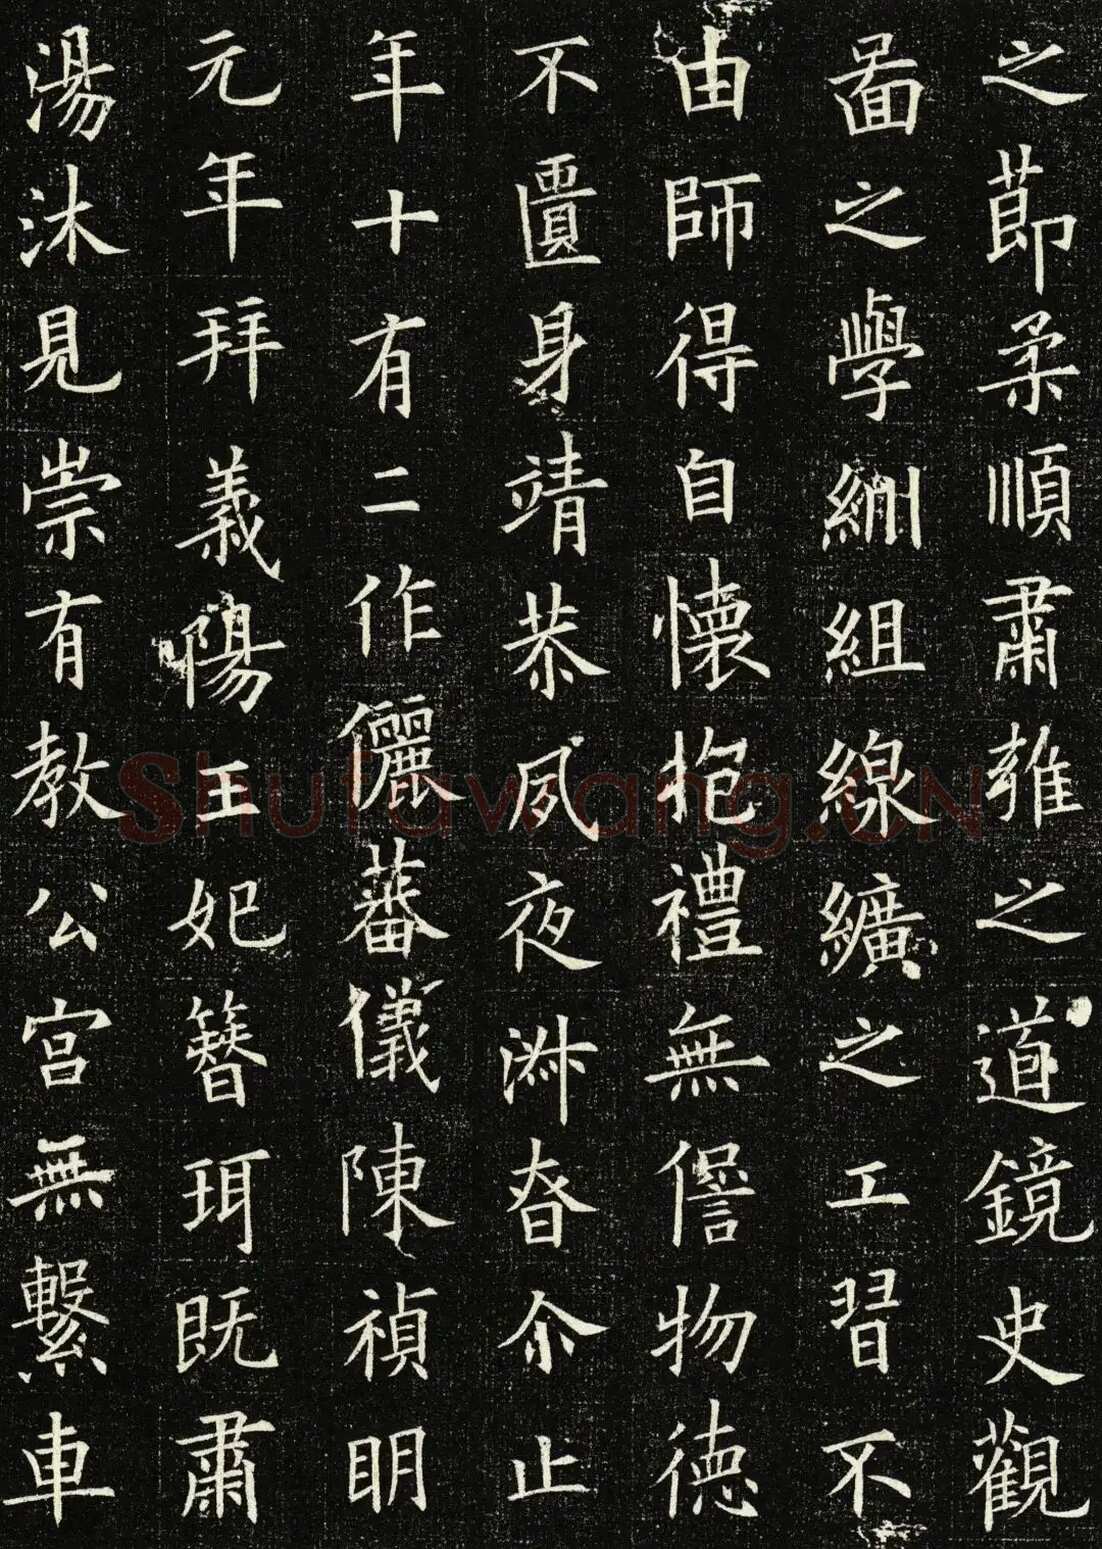 之莭柔順肅雍之道鏡史觀
啚之學紃組線纊之工習不
由師得自懷抱禮無僭物德
不匱身靖恭夙夜淋眘尒止
年十有二作儷蕃儀陳禎明
元年拜義陽王妃簪珥既肅
湯沐見崇有教公宫無繫車
Shufawang.CN